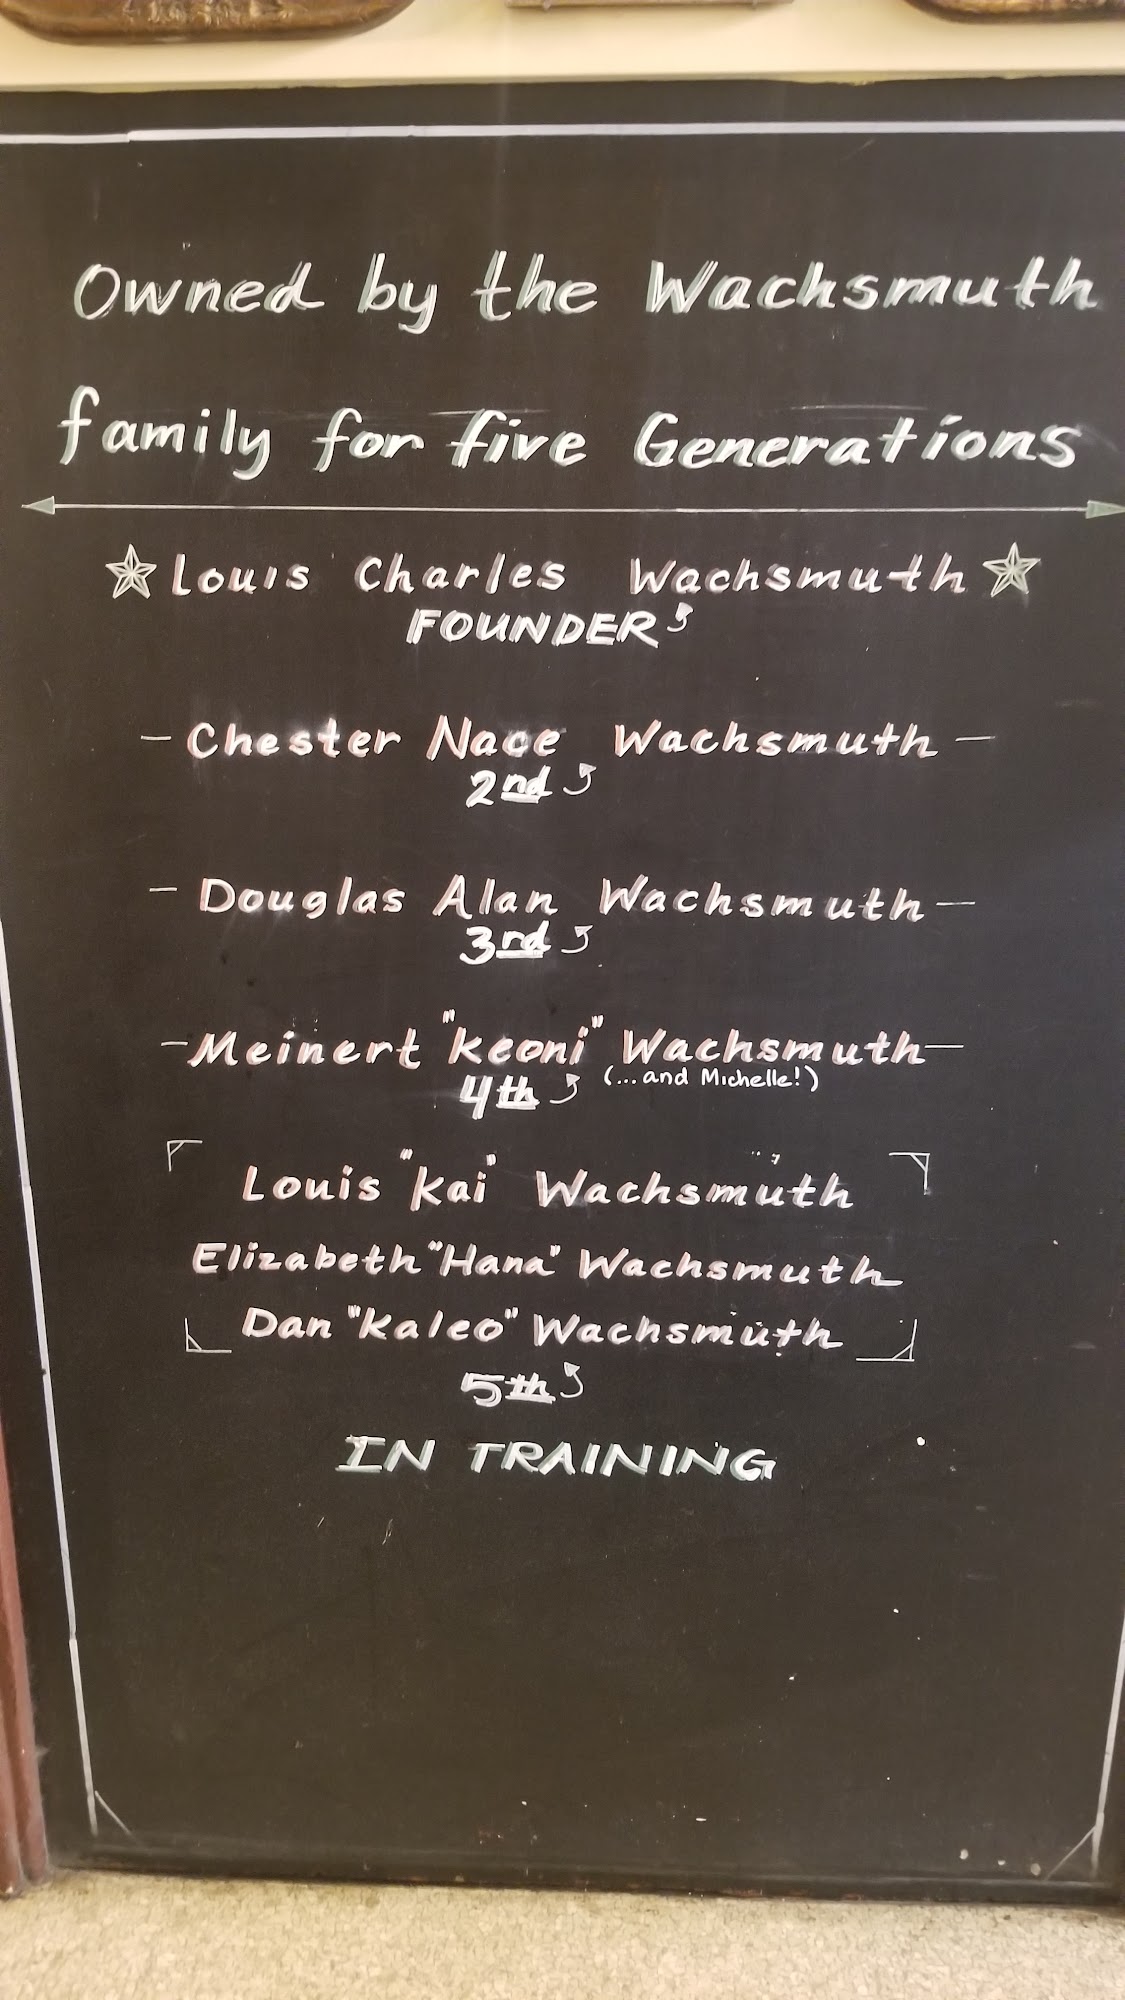 Owned by the Wachsmuth
family for five Generations
Louis Charles Wachsmuth
FOUNDER
- Chester Nace Wachsmuth -
2nd
- Douglas Alan Wachsmuth -
3rd
- Meinert "Keoni" Wachsmuth -
(...and Michelle!)
4th
Louis "Kai" Wachsmuth
Elizabeth "Hana" Wachsmuth
Dan "Kaleo" Wachsmuth
5th
IN TRAINING